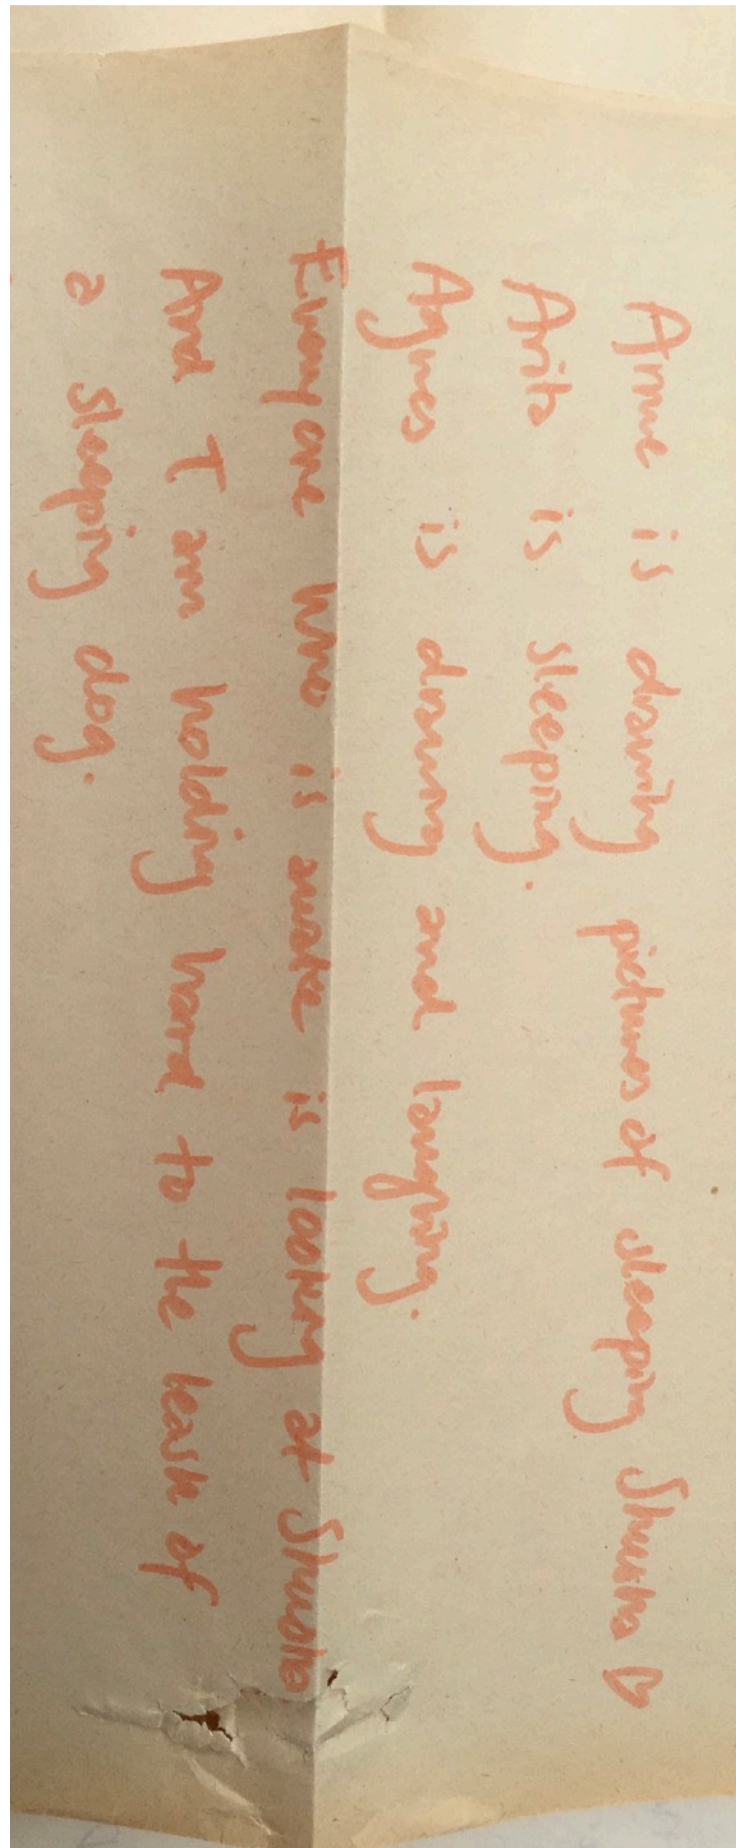 Anne is drawing pictures of sleeping ♡
Anita is sleeping.
Agnes is drawing and laughing.
Everyone who is awake is looking at
And I am holding hard to the leash of
a sleeping dog.